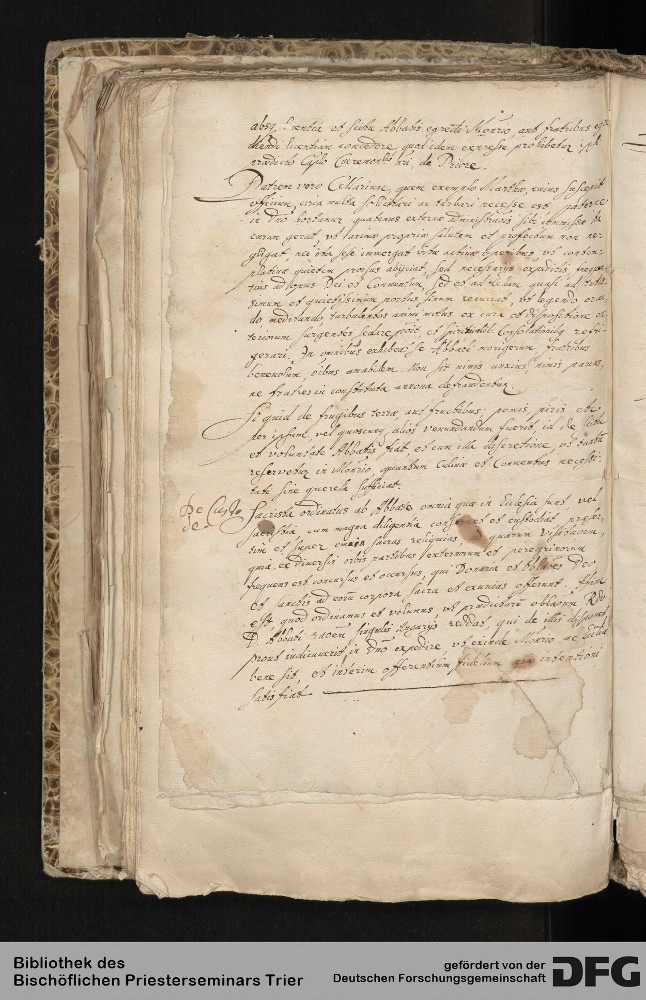 absq, licentia et scitu Abbatis egredi Monrio aut fratribus egre
diendi licentiam concedere quod idem expresse prohibetur
prædicto Caplo Cæremonlis nri de Priore.
Patrem vero Cellarium, quem exemplo Marthæ, cuius suscepit
officium, circa multa sollicitari ac turbari necesse est paterne
in Dno hortamur quatenus externæ administraōis sibi commissæ ita
curam gerat, ut animæ propriæ salutem et profectum non ne,
gligat, nec ita sese immergat vitæ activæ operibus, ut contem,
plativæ quietem prorsus abijciat, sed necessarijs expeditis, frequen
tius ad opus Dei et Conventum, sed et ad Cellam quasi ad tutis,
simum et quietissimum portus sinum recurrat, ut legendo oran,
do, meditando turbulentos animi motus ex cura et dispositione ex,
teriorum surgentes sedare possit, et spirituali Consolatione refri
gerari. In omnibus exhibeat se Abbati morigerum, fratribus
benevolum, oībus amabilem. Non sit nimis anxius, nimis parcus,
ne fratres in constituta annona defraudentur.
Si quid de frugibus terræ, aut fructibus, pomis, piris etc.
vel quoscunq, alios venundandum fuerit, id de scitu
et voluntate Abbatis fiat, et cum illa discretione, ut tantum
reservetur in Monrio, quantum Culinæ et Conventus necessi,
tate sine querela sufficiat.
De Custo
de.
Sacrista ordinatus ab Abbate omnia quæ in Ecclesia sunt, vel
sacristia cum magna diligentia conservet et custodiat præser,
tim et super omnia sacras reliquias, quarum visitationem,
quia ex diversis orbis partibus externorum et peregrinorum
frequens est concursus et occursus, qui Donaria et oblaōes Deo
et sanctis ad eorū corpora sacra et exuvias offerunt.
est quod ordinamus et volumus, ut prædictarū oblaōnum Rdo
D. Abbati raōem singulis reddat, qui de illis disponet
prout iudicaverit in Dno expedire, ut exinde Monrio ac Ecclesiæ
bene sit, et interim offerentium fidelium pia intentioni
satisfiat.
Bibliothek des
Bischöflichen Priesterseminars Trier
gefördert von der
Deutschen Forschungsgemeinschaft
DFG